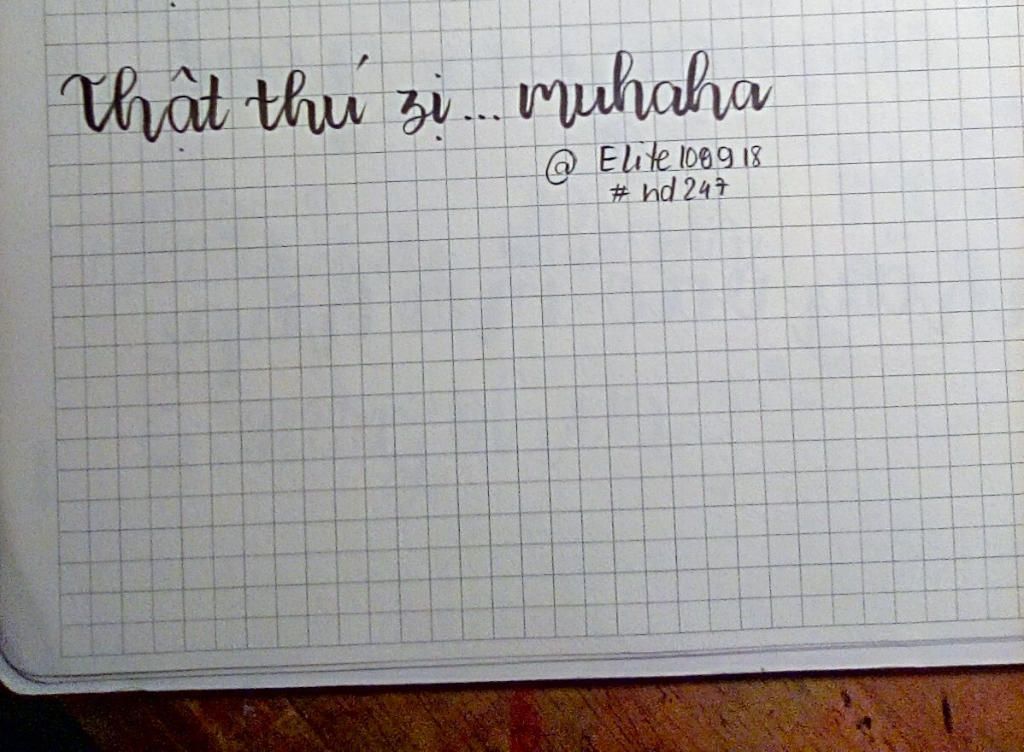 Thật thú zị... muhaha
@ Elite100918
# nd247